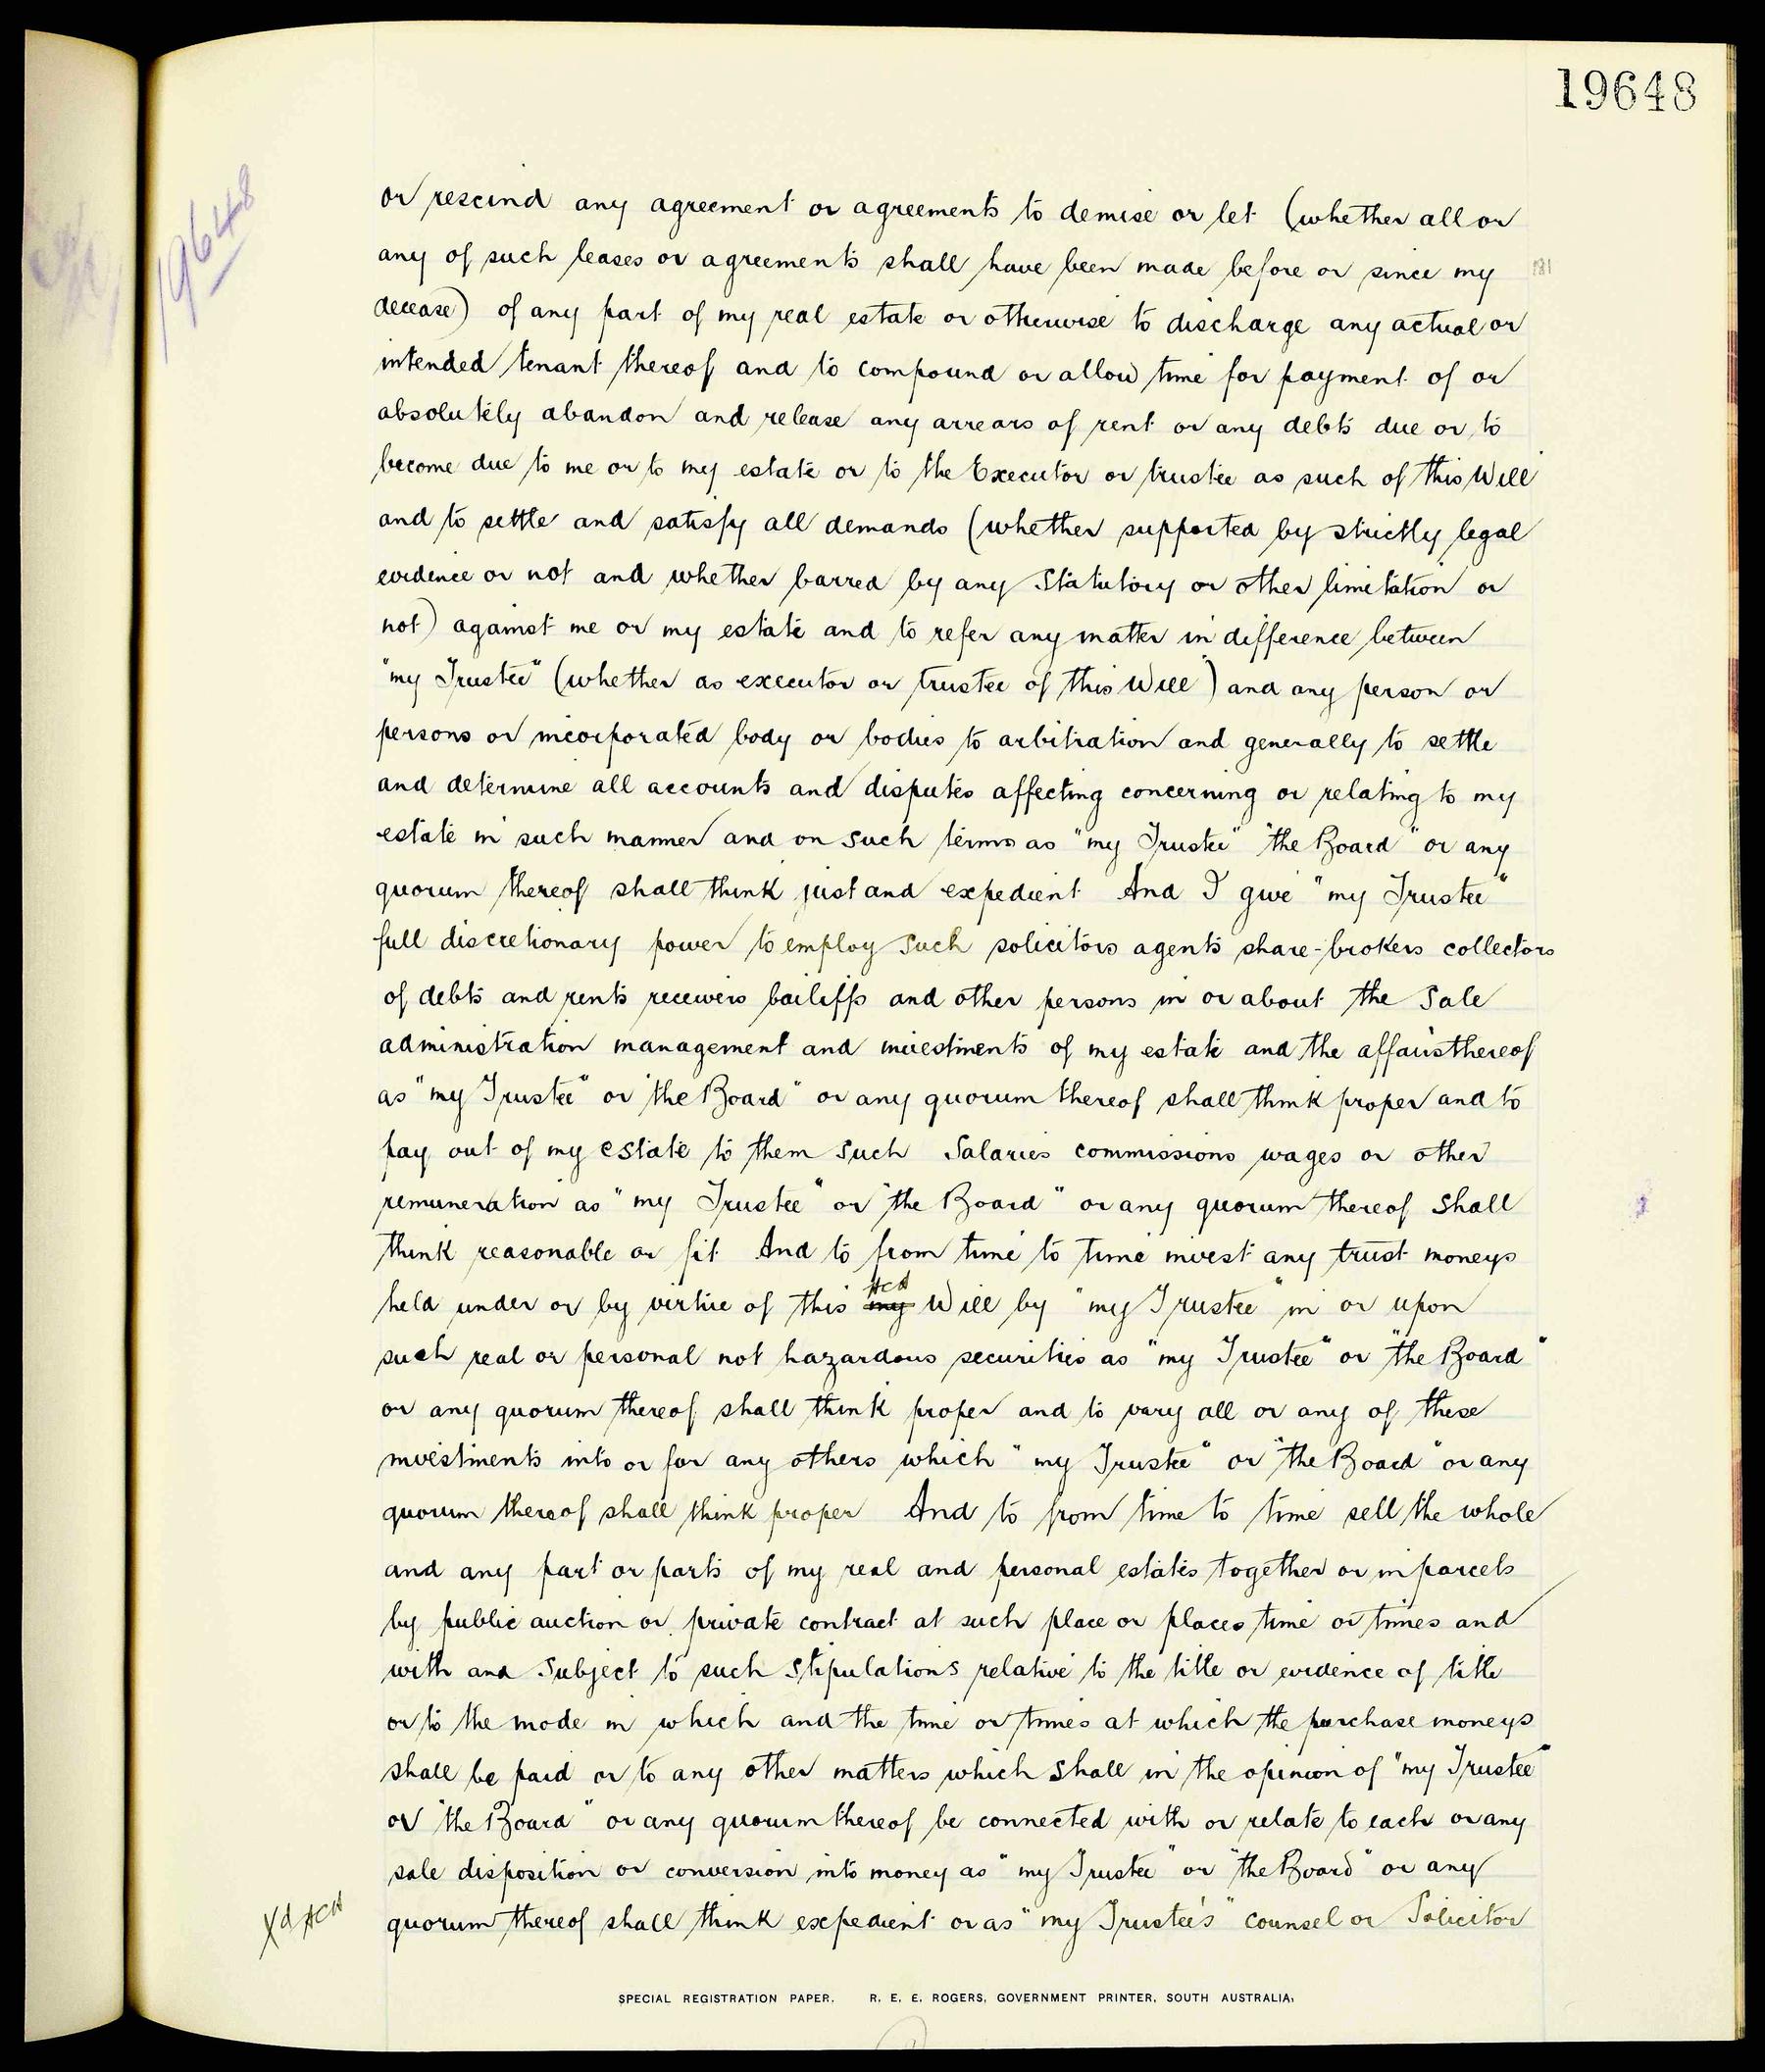 19648
19648
or rescind any agreement or agreements to demise or let (whether all or
any of such leases or agreements shall have been made before or since my
decease) of any part of my real estate or otherwise to discharge any actual or
intended tenant thereof and to compound or allow time for payment of or
absolutely abandon and release any arrears of rent or any debts due or to
become due to me or to my estate or to the Executor or trustee as such of this Will
and to settle and satisfy all demands (whether supported by strictly legal
evidence or not and whether barred by any Statutory or other limitation or
not) against me or my estate and to refer any matter in difference between
"my Trustee" (whether as executor or trustee of this Will) and any person or
persons or incorporated body or bodies to arbitration and generally to settle
and determine all accounts and disputes affecting concerning or relating to my
estate in such manner and on such terms as "my Trustee" "the Board" or any
quorum thereof shall think just and expedient And I give "my Trustee"
full discretionary power to employ such solicitors agents share-brokers collectors
of debts and rents receivers bailiffs and other persons in or about the Sale
administration management and investments of my estate and the affairs thereof
as "my Trustee" or "the Board" or any quorum thereof shall think proper and to
pay out of my estate to them such Salaries commissions wages or other
remuneration as "my Trustee" or "the Board" or any quorum thereof shall
think reasonable or fit And to from time to time invest any trust moneys
ACH
held under or by virtue of this my Will by "my Trustee" in or upon
such real or personal not hazardous securities as "my Trustee" or "the Board"
or any quorum thereof shall think proper and to vary all or any of these
investments into or for any others which "my Trustee" or "the Board" or any
quorum thereof shall think proper And to from time to time sell the whole
and any part or parts of my real and personal estates together or in parcels
by public auction or private contract at such place or places time or times and
with and Subject to such Stipulations relative to the title or evidence of title
or to the mode in which and the time or times at which the purchase moneys
shall be paid or to any other matters which shall in the opinion of "my Trustee"
or "the Board" or any quorum thereof be connected with or relate to each or any
sale disposition or conversion into money as "my Trustee" or "the Board" or any
Xd ACH
quorum thereof shall think expedient or as "my Trustee's" counsel or Solicitor
SPECIAL REGISTRATION PAPER. R. E. E. ROGERS, GOVERNMENT PRINTER, SOUTH AUSTRALIA.